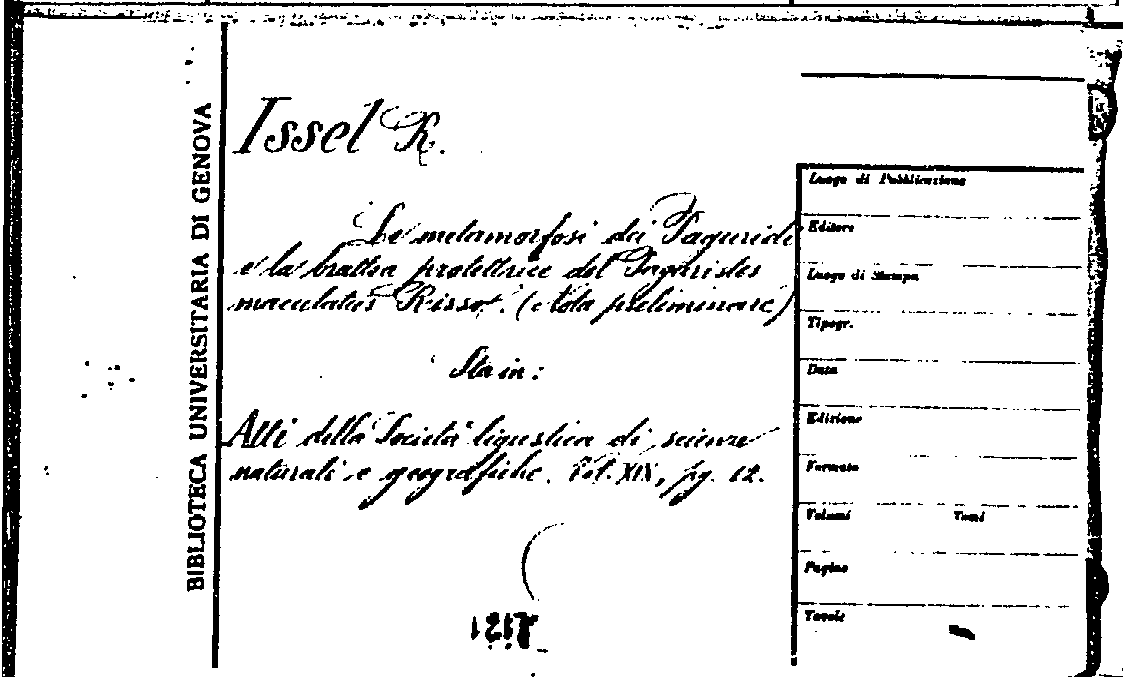 BIBLIOTECA UNIVERSITARIA DI GENOVA
Issel R.
Le metamorfosi dei Paguridi
e la brattea protettrice del Paguristes
maculatus Risso. (Nota preliminare)
Sta in:
Atti della Società ligustica di scienze
naturali e geografiche. Vol. XIX, pg. 12.
Luogo di Pubblicazione
Editore
Luogo di Stampa
Tipogr.
Data
Edizione
Formato
Volumi Tomi
Pagine
Tavole